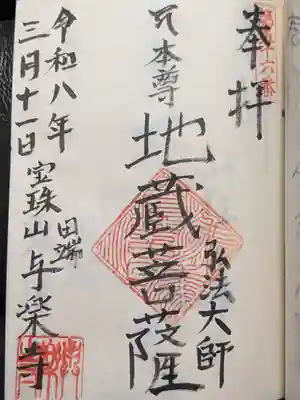 奉拝
十六番
本尊
地蔵菩薩
弘法大師
令和八年
三月十一日
田端
宝珠山与楽寺